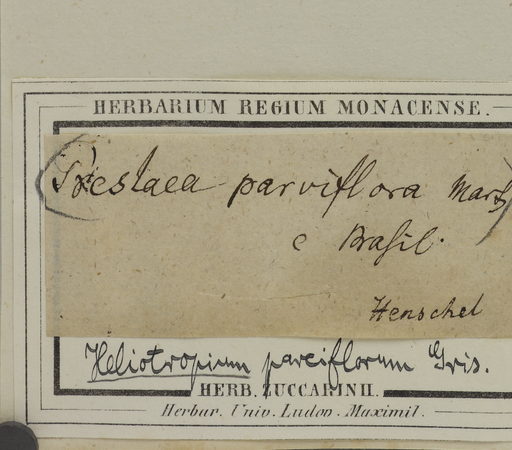 HERBARIUM REGIUM MONACENSE.
(Preslaea parviflora Mart)
e Brasil.
Henschel
Heliotropium parciflorum Gris.
HERB. ZUCCARINII.
Herbar. Univ. Ludov. Maximil.